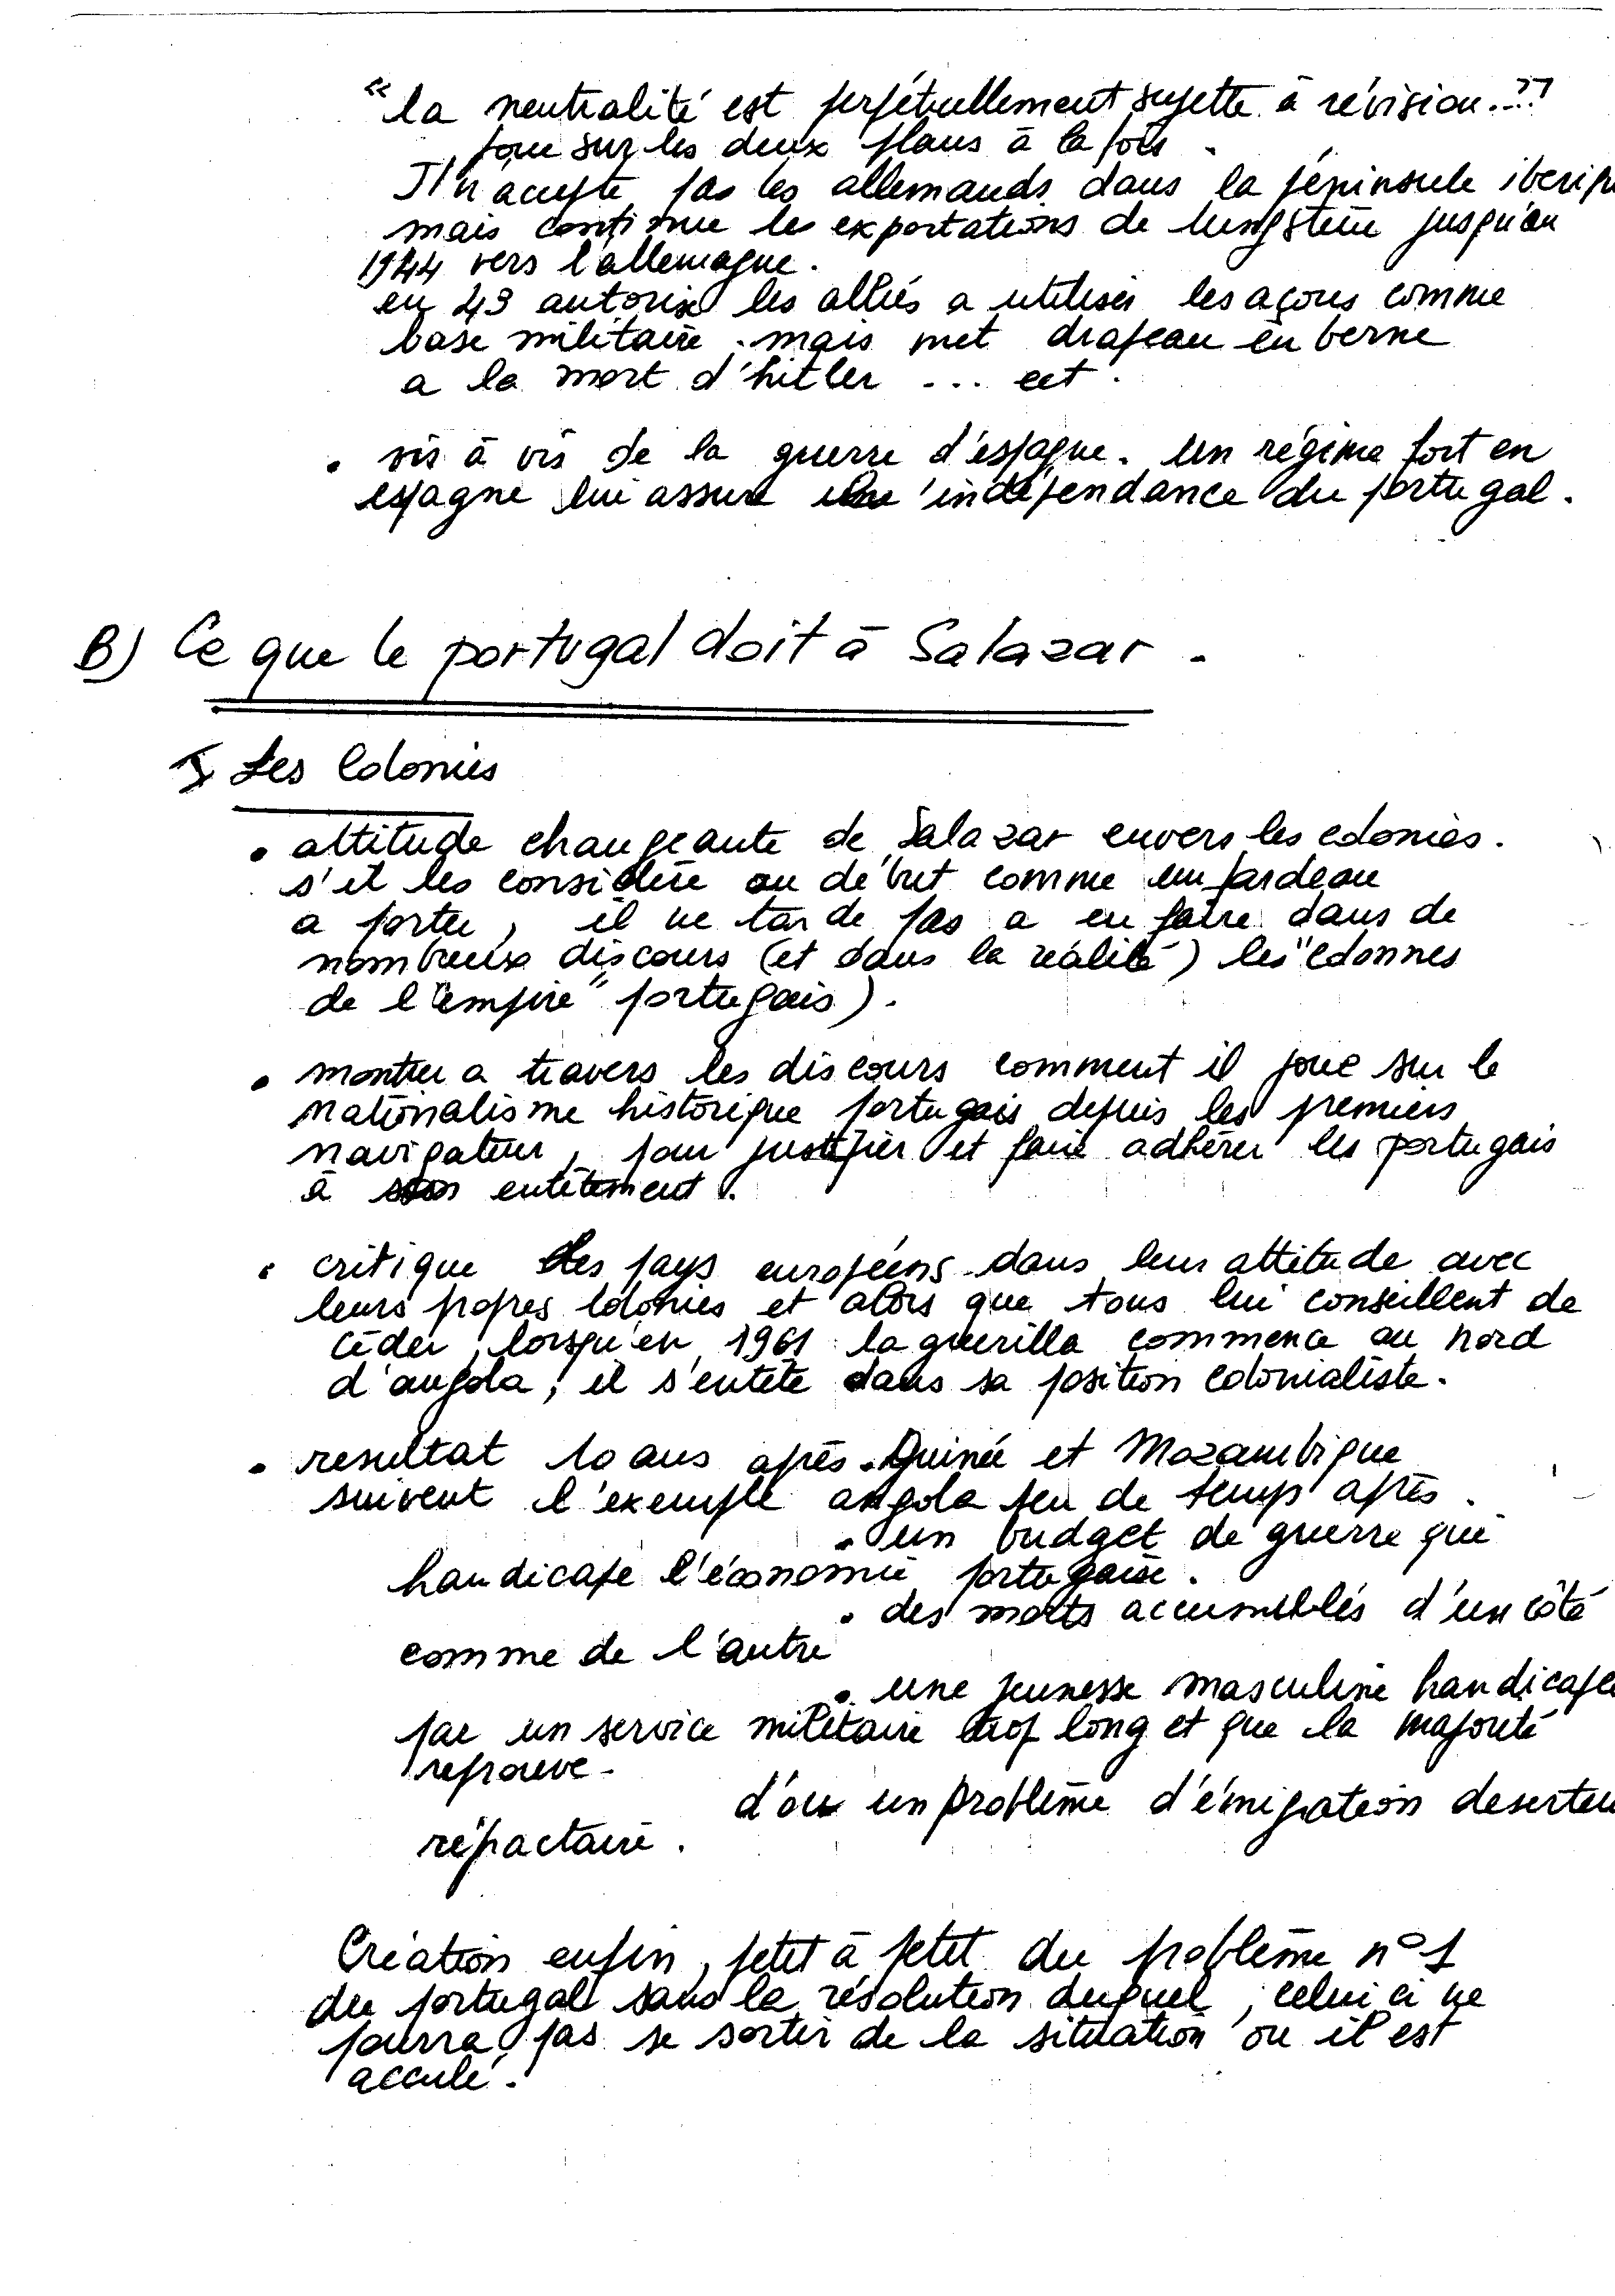 “la neutralité est perpétuellement sujette à révision..”
joue sur les deux plans à la fois.
Il n'accepte pas les allemands dans la péninsule
mais continue les exportations de tungstène jusqu'au
1944 vers l'allemagne.
en 43 autorise les alliés a utiliser les açores comme
base militaire. mais met drapeau en berne
a la mort d'hitler ... ect.
• vis à vis de la guerre d'espagne. un régime fort en
espagne lui assure l'indépendance du portugal.
B) Ce que le portugal doit à Salazar.
Les Colonies
• attitude changeante de Salazar envers les colonies.
s'il les considère au début comme un fardeau
a porter, il ne tarde pas a en faire dans de
nombreux discours (et dans la réalité) les "colonnes
de l'empire" portugais).
• montrer a travers les discours comment il joue sur le
nationalisme historique portugais depuis les premiers
navigateurs, pour justifier et faire adhérer les portugais
à son entêtement.
• critique des pays européens dans leur attitude avec
leurs propres colonies et alors que tous lui conseillent de
céder, lorsqu'en 1961 la guerilla commence au nord
d'angola, il s'entête dans sa position colonialiste.
• resultat 10 ans après. Guinée et Mozambique
suivent l'exemple angola peu de temps après.
• un budget de guerre qui
handicape l'économie portugaise.
• des morts accumulés d'un côté
comme de l'autre
• une jeunesse masculine handicapée
par un service militaire trop long et que la majorité
reprouve.
d'ou un problème d'émigration deserteur
réfractaire.
Création enfin, petit à petit du problème n°1
du portugal sans la résolution duquel, celui ci ne
pourra pas se sortir de la situation ou il est
acculé.